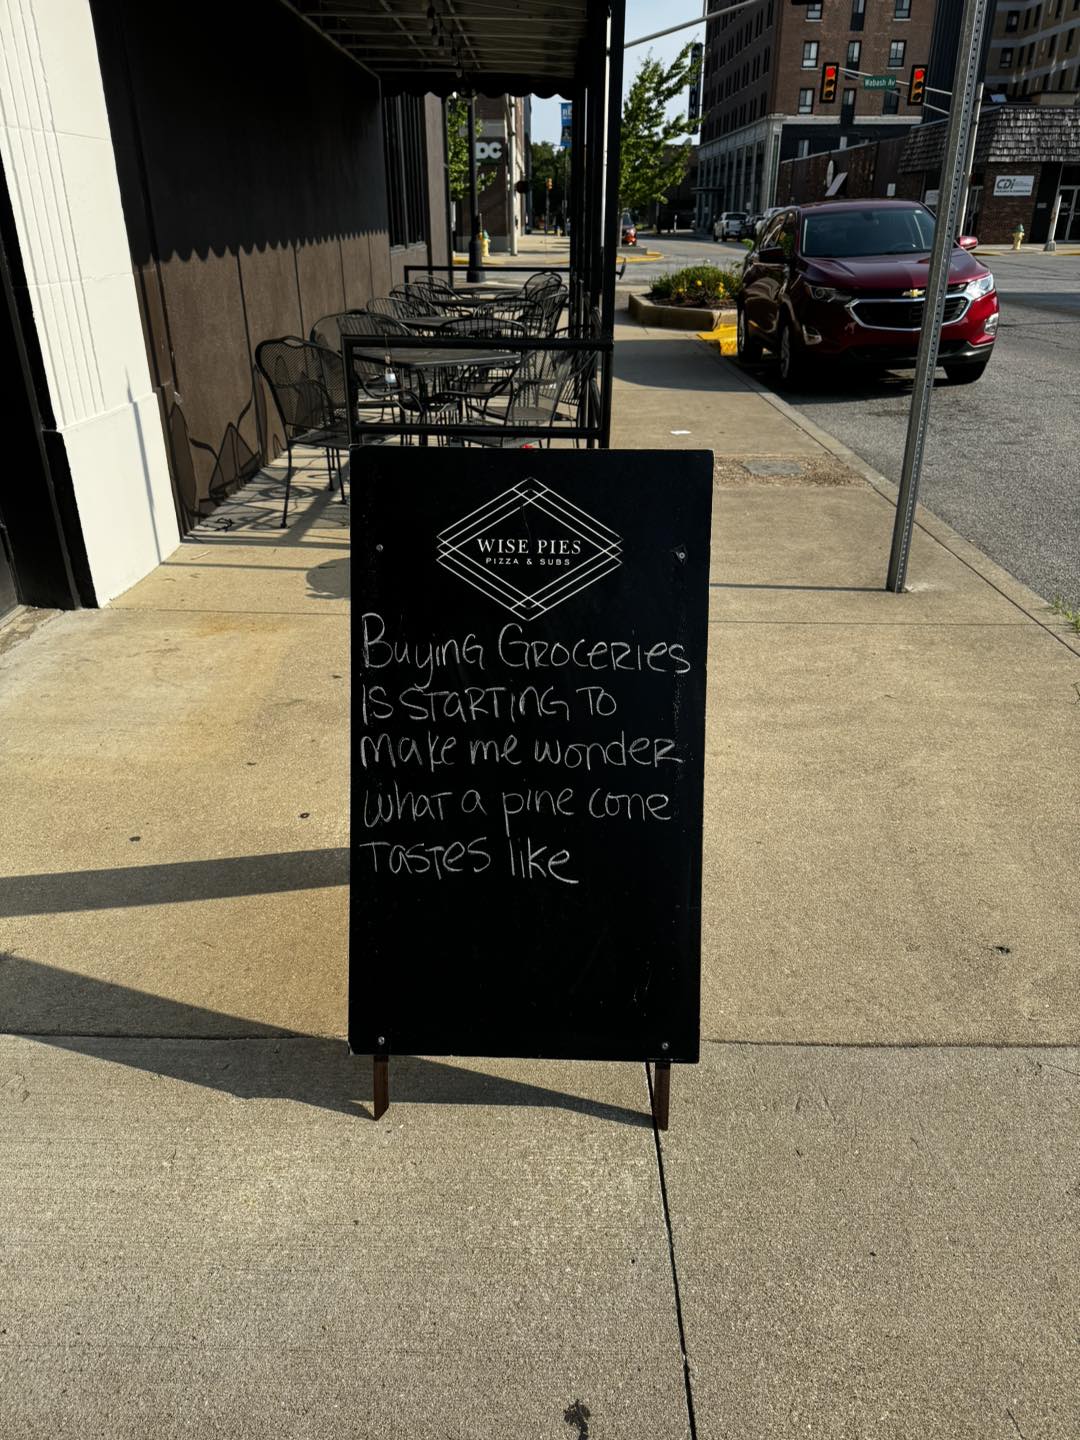 Wabash Av
pc
CDI
WISE PIES
PIZZA & SUBS
Buying Groceries
is starting to
make me wonder
what a pine cone
tastes like